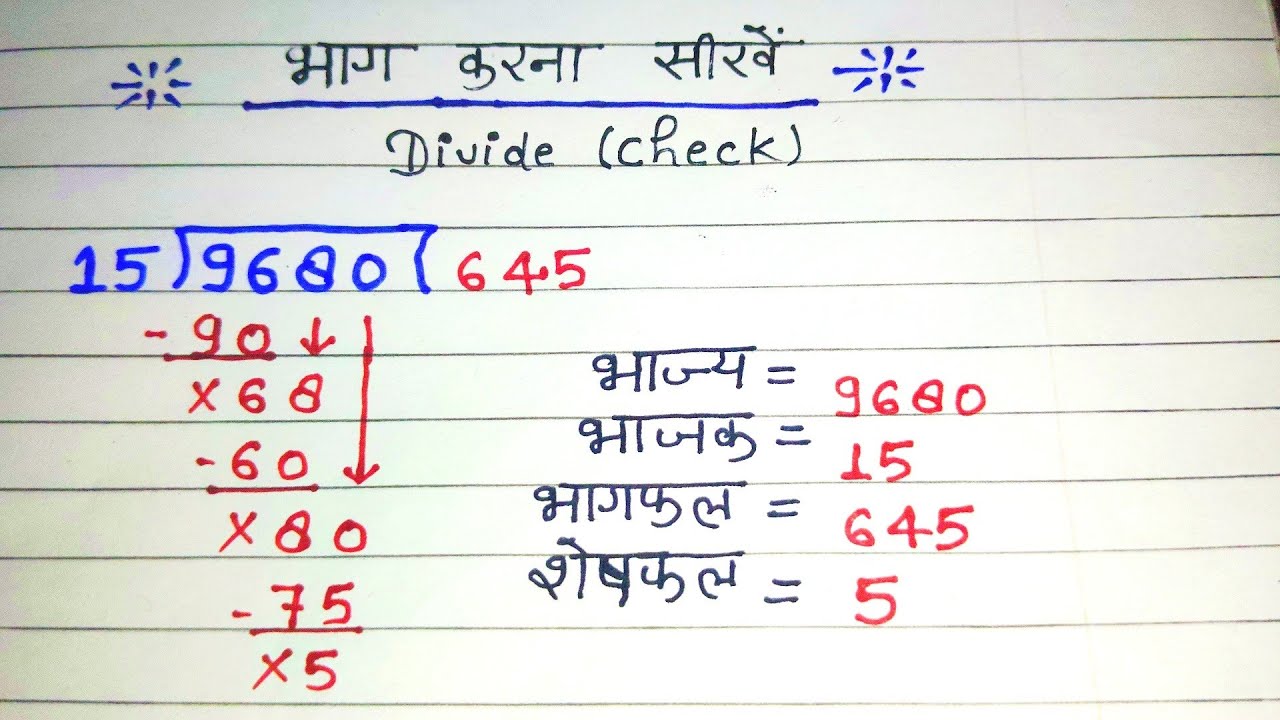 भाग करना सीखें
Divide (check)
15)9680(645
-90
×68
-60
×80
-75
×5
भाज्य = 9680
भाजक = 15
भागफल = 645
शेषफल = 5